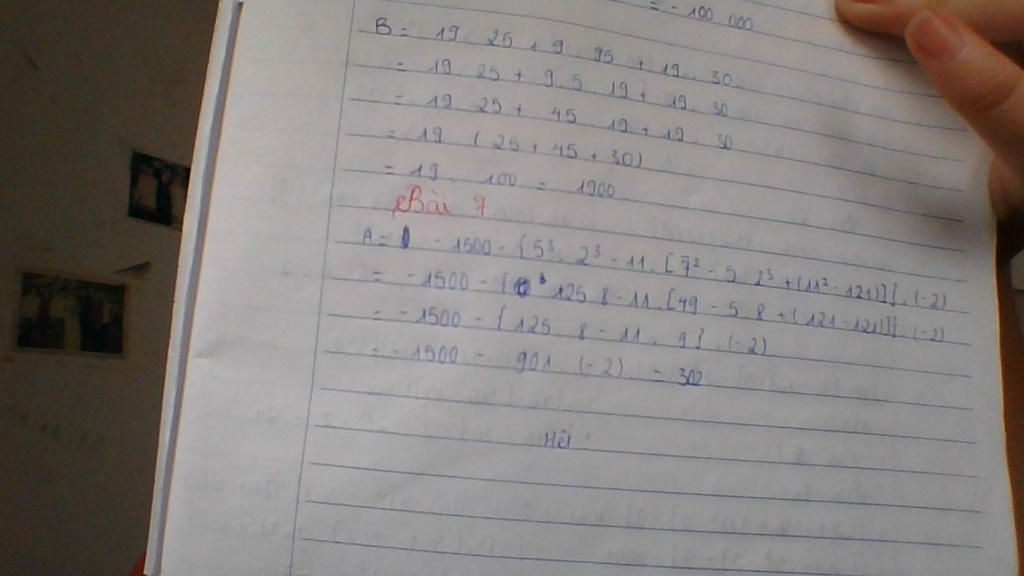 = - 100 000
B = 19 . 25 + 9 . 95 + 19 . 30
= 19 . 25 + 9 . 5 . 19 + 19 . 30
= 19 . 25 + 45 . 19 + 19 . 30
= 19 . ( 25 + 45 + 30 )
= 19 . 100 = 1900
Bài 7
A = - 1500 - { 5³ . 2³ - 11 . [ 7² - 5 . 2³ + ( 11² - 121 ) ] } . (-2)
= - 1500 - { 125 . 8 - 11 . [ 49 - 5 . 8 + ( 121 - 121 ) ] } . (-2)
= - 1500 - { 125 . 8 - 11 . 9 } . (-2)
= - 1500 - 901 . (-2) = 302
Hết !